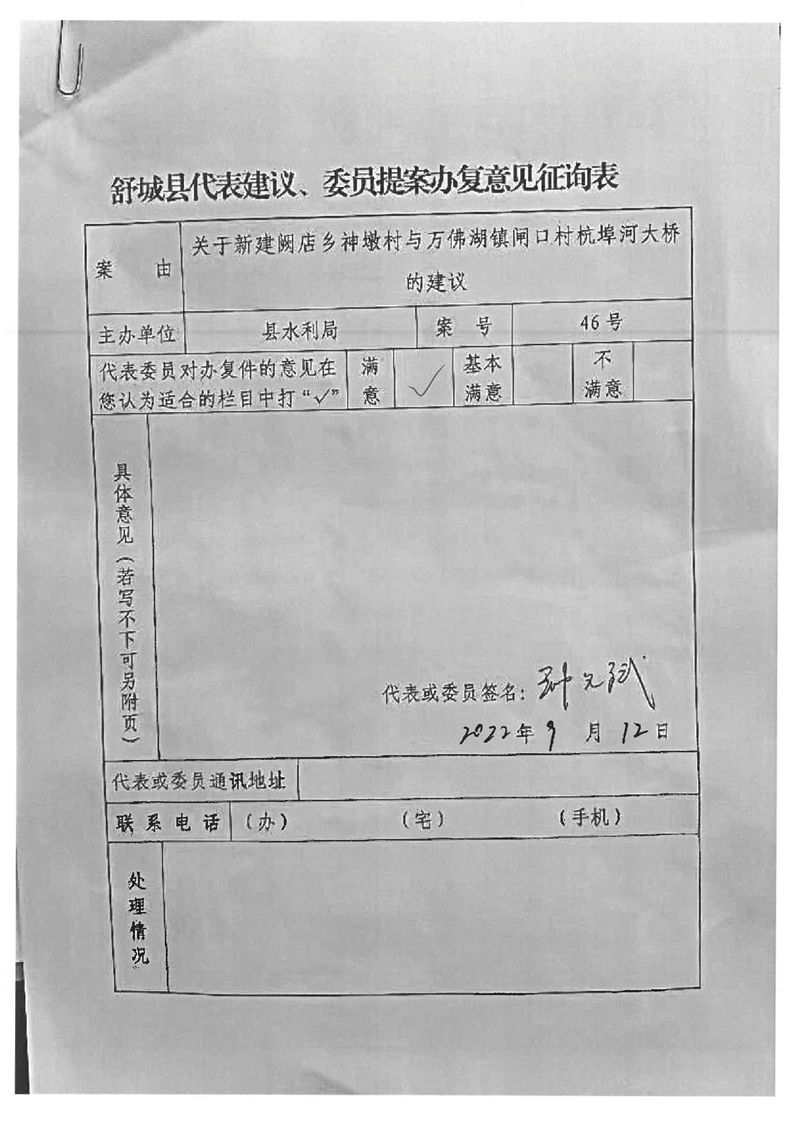 舒城县代表建议、委员提案办复意见征询表
案 由
关于新建阙店乡神墩村与万佛湖镇闸口村杭埠河大桥
的建议
主办单位 县水利局 案 号 46号
代表委员对办复件的意见在
您认为适合的栏目中打“√”
满意
√
基本满意
不满意
具体意见（若写不下可另附页）
代表或委员签名：
2022年9月12日
代表或委员通讯地址
联系电话 （办） （宅） （手机）
处理情况